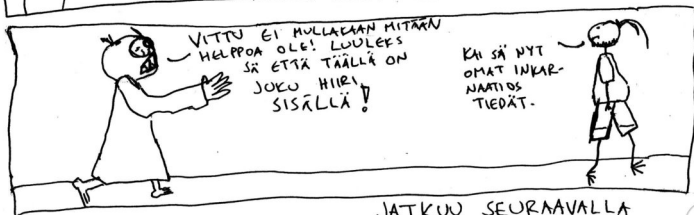 VITTU EI MULLAKAAN MITÄÄN
HELPPOA OLE! LUULEKS
SÄ ETTÄ TÄÄLLÄ ON
JOKU HIIRI
SISÄLLÄ!
KAI SÄ NYT
OMAT INKAR-
NAATIOS
TIEDÄT.
JATKUU SEURAAVALLA